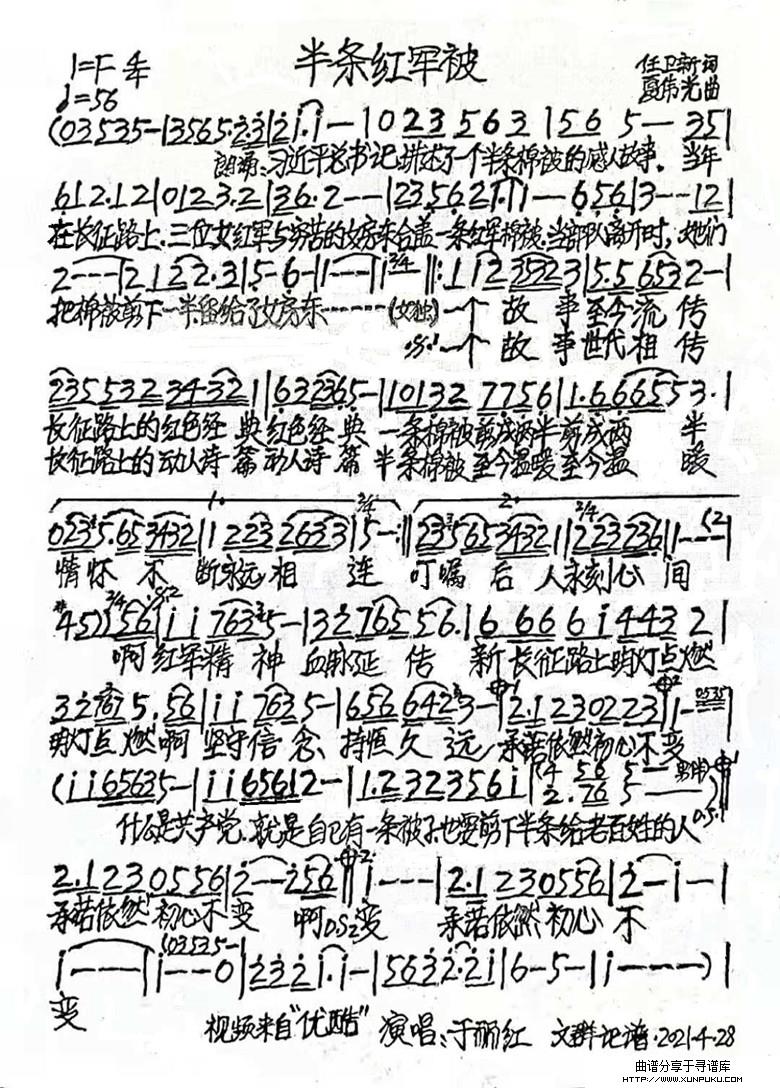 半条红军被
1=F 4/4
♩=56
任卫新词
夏伟光曲
(03535-|3565·23|2i·i--|0 23 563 | 56 5-- 35|
朗诵:习近平总书记讲述了一个半条棉被的感人故事。当年
612·12|0123·2|36·2--|23562i·i|--656|3--12|
在长征路上,三位女红军与穷苦的女房东合盖一条红军棉被.当部队离开时,她们
2---|2122·3|5-6-|1---|1 3/4 ‖:112 35323|5·56532-|
把棉被剪下一半留给了女房东……(女独)一个 故 事至今流 传
一个 故 事世代相 传
235532 34321|632365-|10132 7756|1·6 66553·|
长征路上的红色经 典红色经 典 一条棉被剪成两半剪成两 半
长征路上的动人诗 篇动人诗 篇 半条棉被至今温暖至今温 暖
1. 2/4 2. 2/4
情怀 不 断永远相 连 叮嘱 后 人永刻心 间
啊 红军精 神 血脉延 传 新长征路上明灯点燃
明灯点 燃啊 坚守信 念 持恒久 远 承诺依然初心不变
(ii65635-|ii65612-|1·232356i|
男诵
什么是共产党,就是自己有一条被子也要剪下半条给老百姓的人
D.S.1
2·1230556|2--256‖i---|2·1230556|2-i-|
承诺依然初心不变 啊D.S2变 承诺依然初心不
(03535-
i---|i--0|232i·i-|56322·2i|6-5-|i---)|
变
视频来自“优酷” 演唱:于丽红 文群记谱·2021·4·28
曲谱分享于寻谱库
HTTP://WWW.XUNPUKU.COM